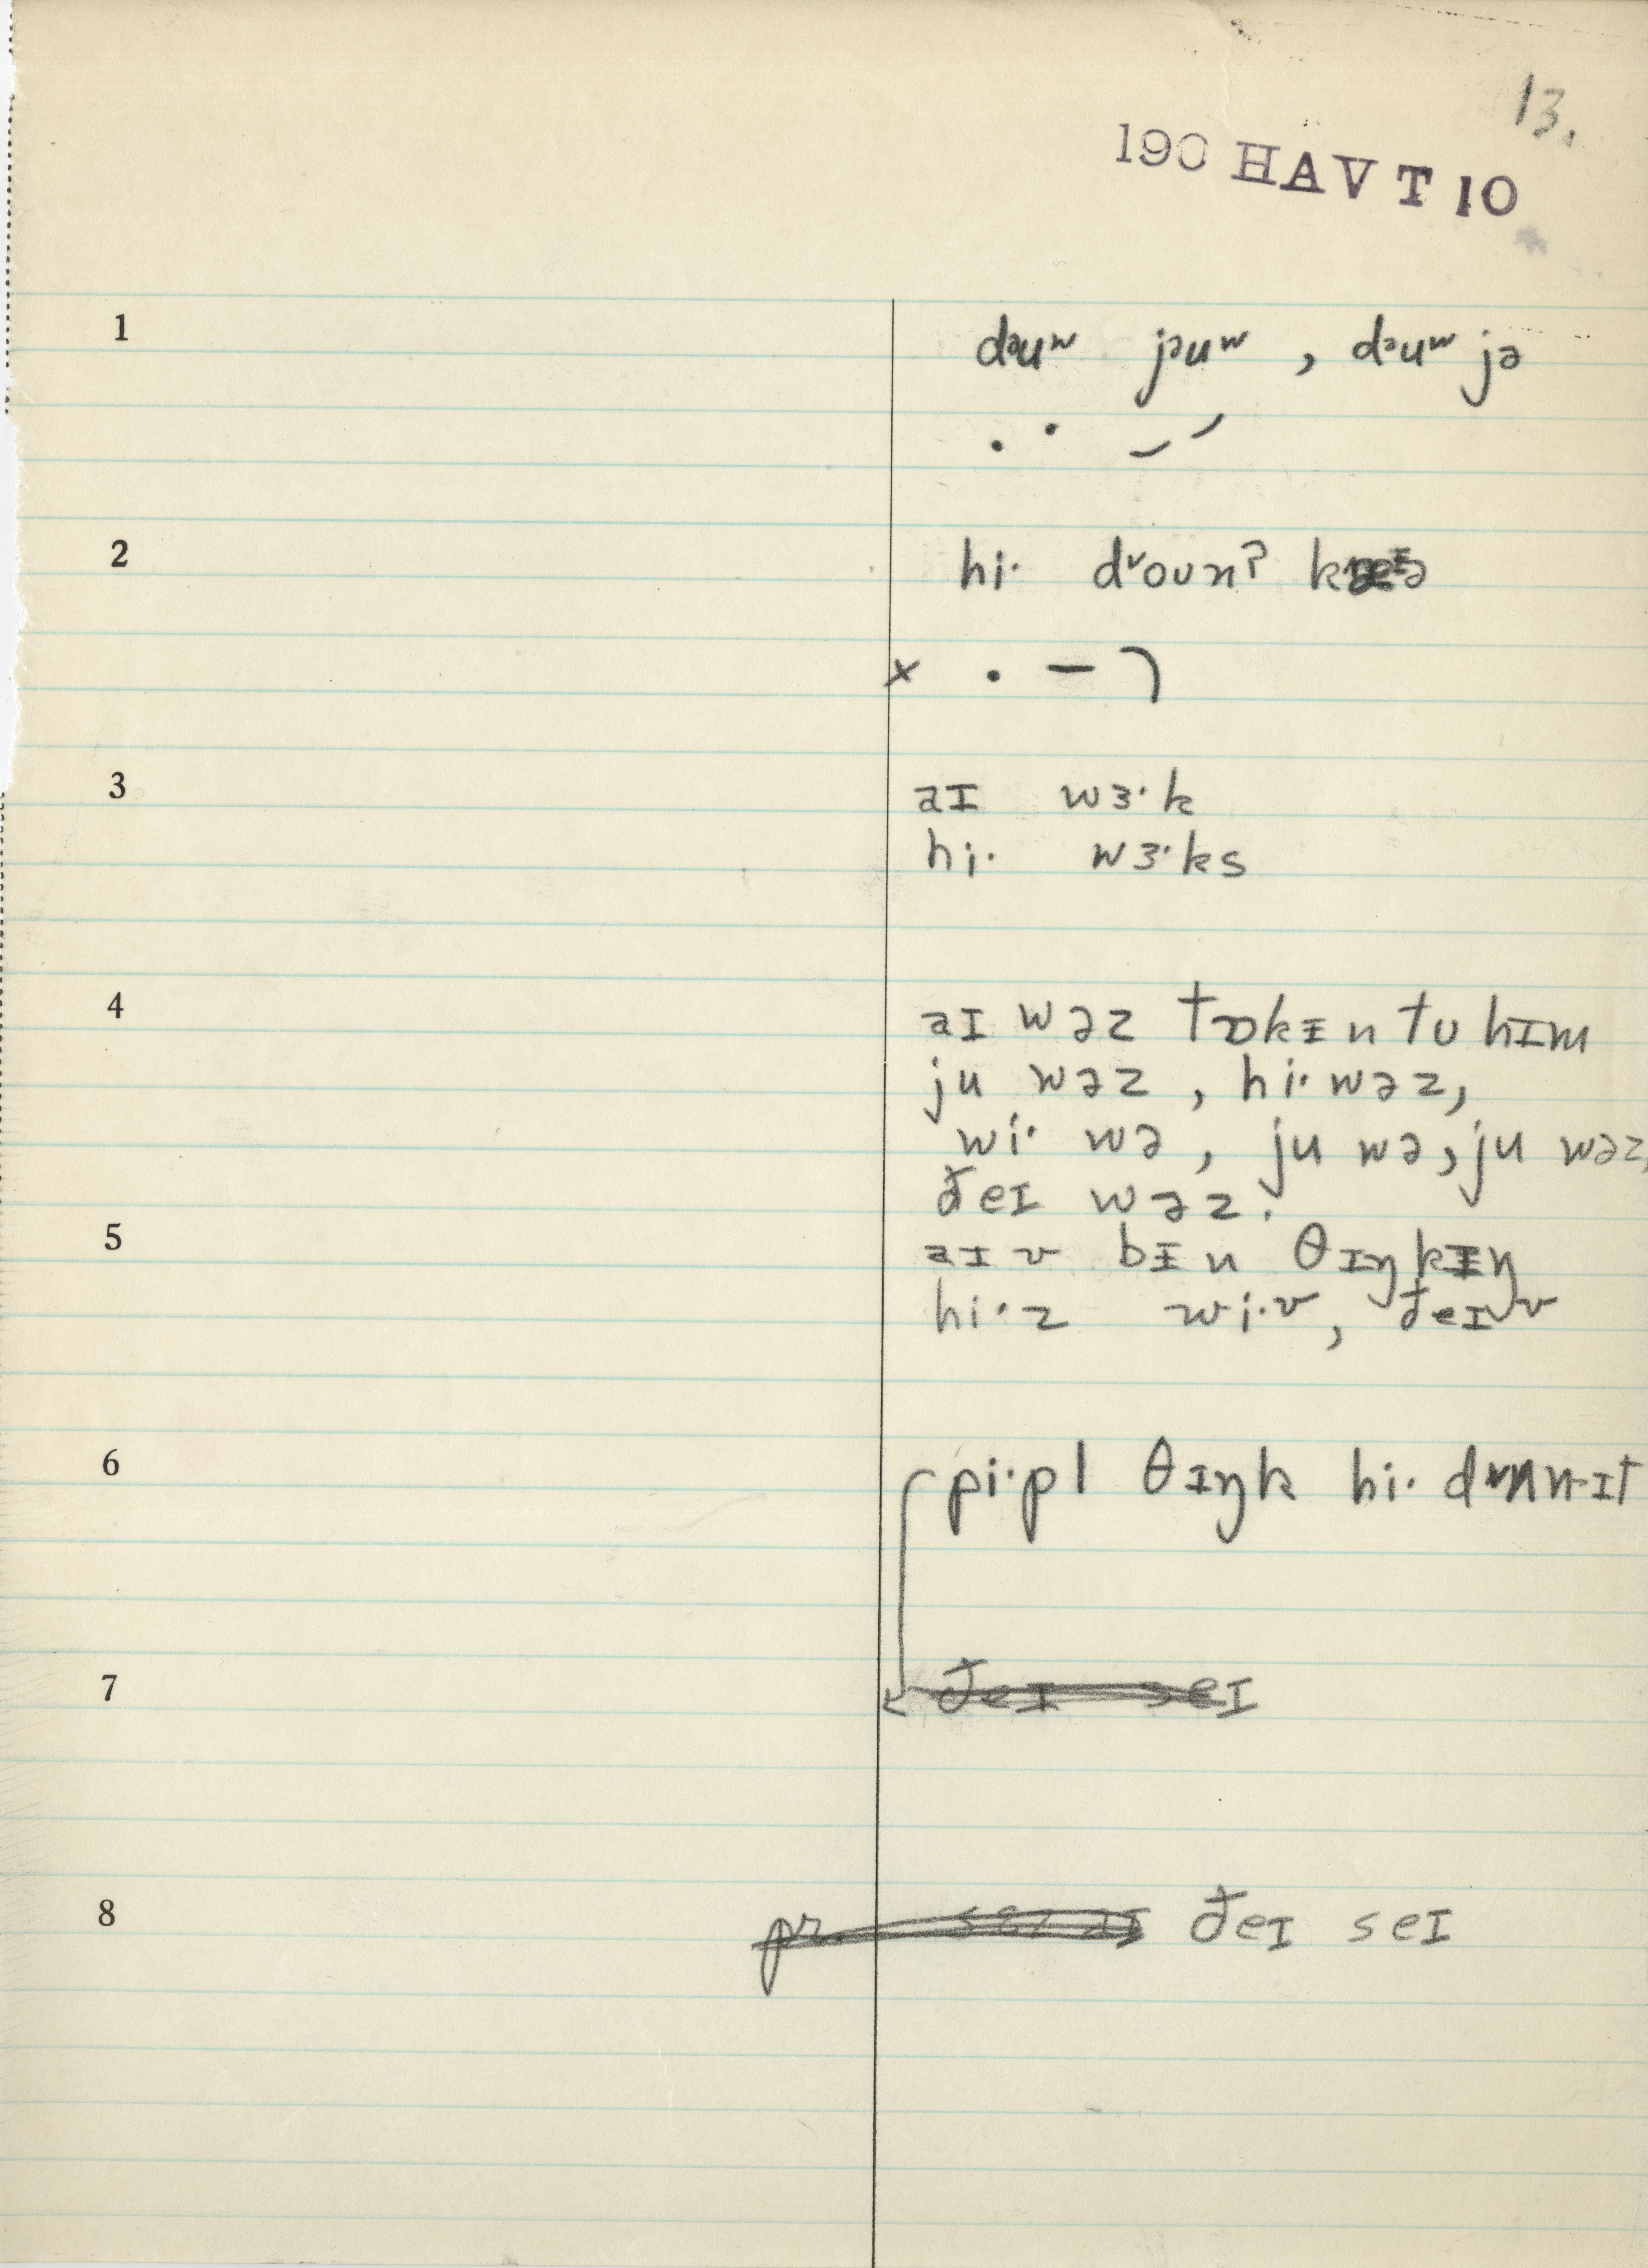 13.
190 HAV T 10
1 dəuʷ jəuʷ , dəuʷ jə
2 hi· dᵛoʊnˀ
3 aɪ wɜ·k
hi· wɜ·ks
4 aɪ wəz tɒkɨn tʊ hɪm
ju wəz , hi· wəz,
wi· wə , ju wə, ju wəz,
ðeɪ wəz.
5 aɪ v bɨn θɪŋkɪŋ
hi·z wi·v, ðeɪ v
6 pi·pl θɪŋk hi·
7 ðeɪ seɪ
8 ðeɪ seɪ